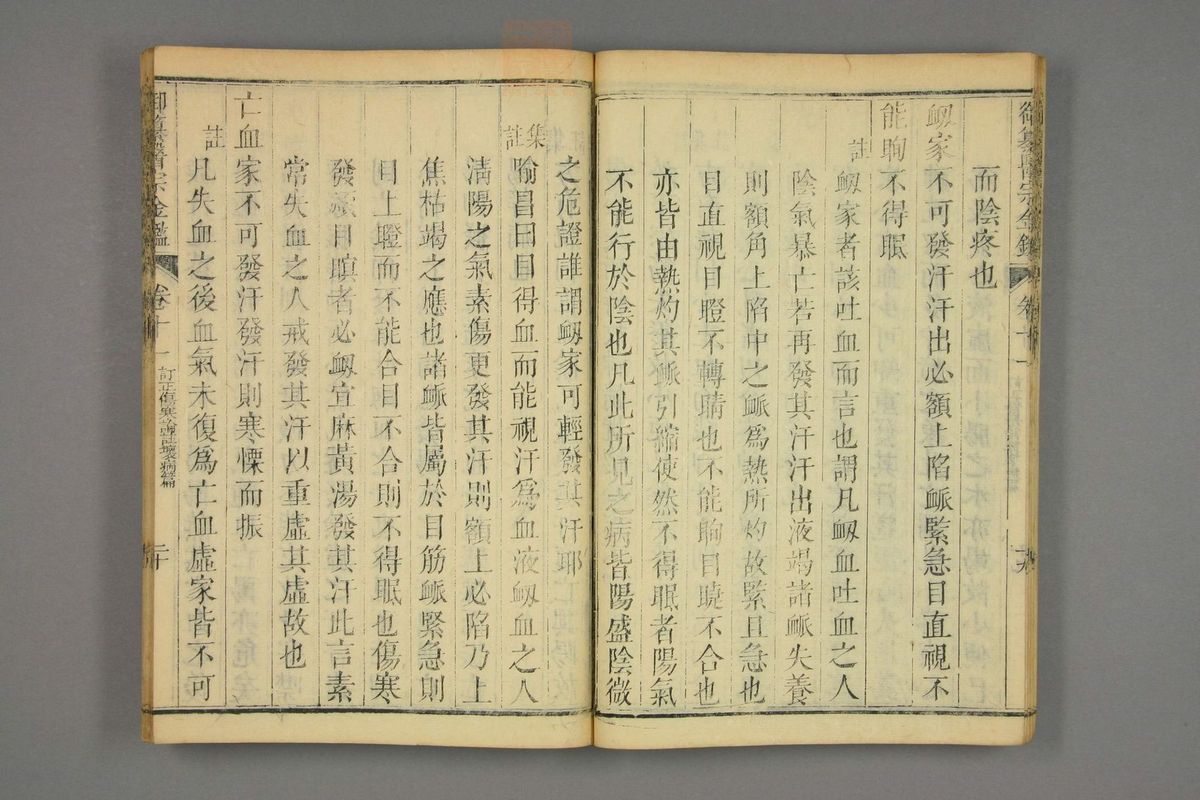 御纂醫宗金鑑 卷十一
而陰疼也
衂家不可發汗汗出必額上陷脈緊急目直視不
能眴不得眠
註 衂家者該吐血而言也謂凡衂血吐血之人
陰氣暴亡若再發其汗汗出液竭諸脈失養
則額角上陷中之脈爲熱所灼故緊且急也
目直視目瞪不轉睛也不能眴目睫不合也
亦皆由熱灼其脈引縮使然不得眠者陽氣
不能行於陰也凡此所見之病皆陽盛陰微
之危證誰謂衂家可輕發其汗耶
集註 喻昌曰目得血而能視汗爲血液衂血之人
淸陽之氣素傷更發其汗則額上必陷乃上
焦枯竭之應也諸脈皆屬於目筋脈緊急則
目上瞪而不能合目不合則不得眠也傷寒
發煩目瞑者必衂宜麻黃湯發其汗此言素
常失血之人戒發其汗以重虛其虛故也
亡血家不可發汗發汗則寒慄而振
註 凡失血之後血氣未復爲亡血虛家皆不可
御纂醫宗金鑑 卷十一 訂正傷寒論註壞病篇 二十